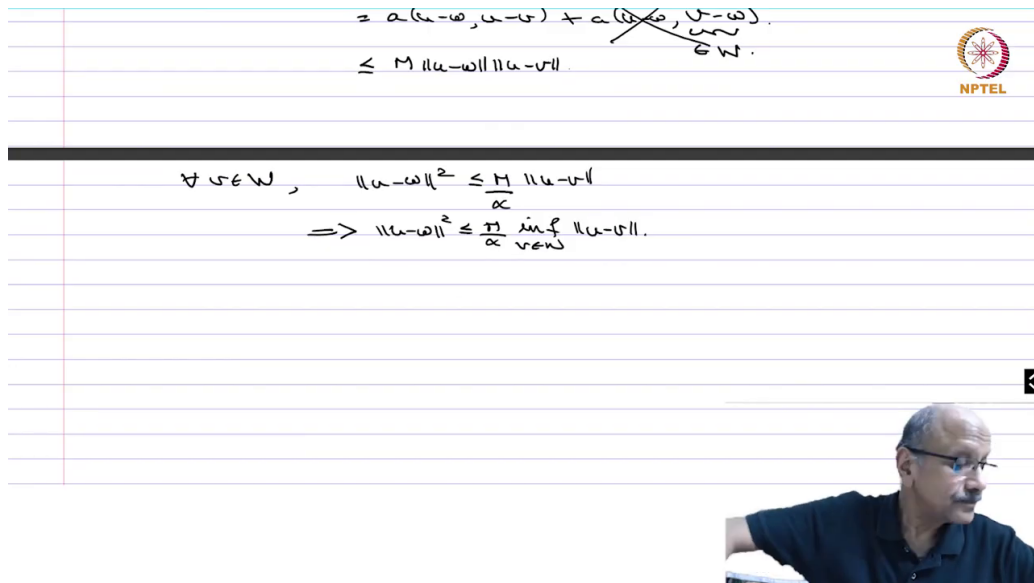 = a(u-w, u-v) + a(u-w, v-w).
∈ W.
≤ M ||u-w|| ||u-v||.
NPTEL
∀ v∈W, ||u-w||² ≤ M/α ||u-v||
=> ||u-w||² ≤ M/α inf v∈W ||u-v||.